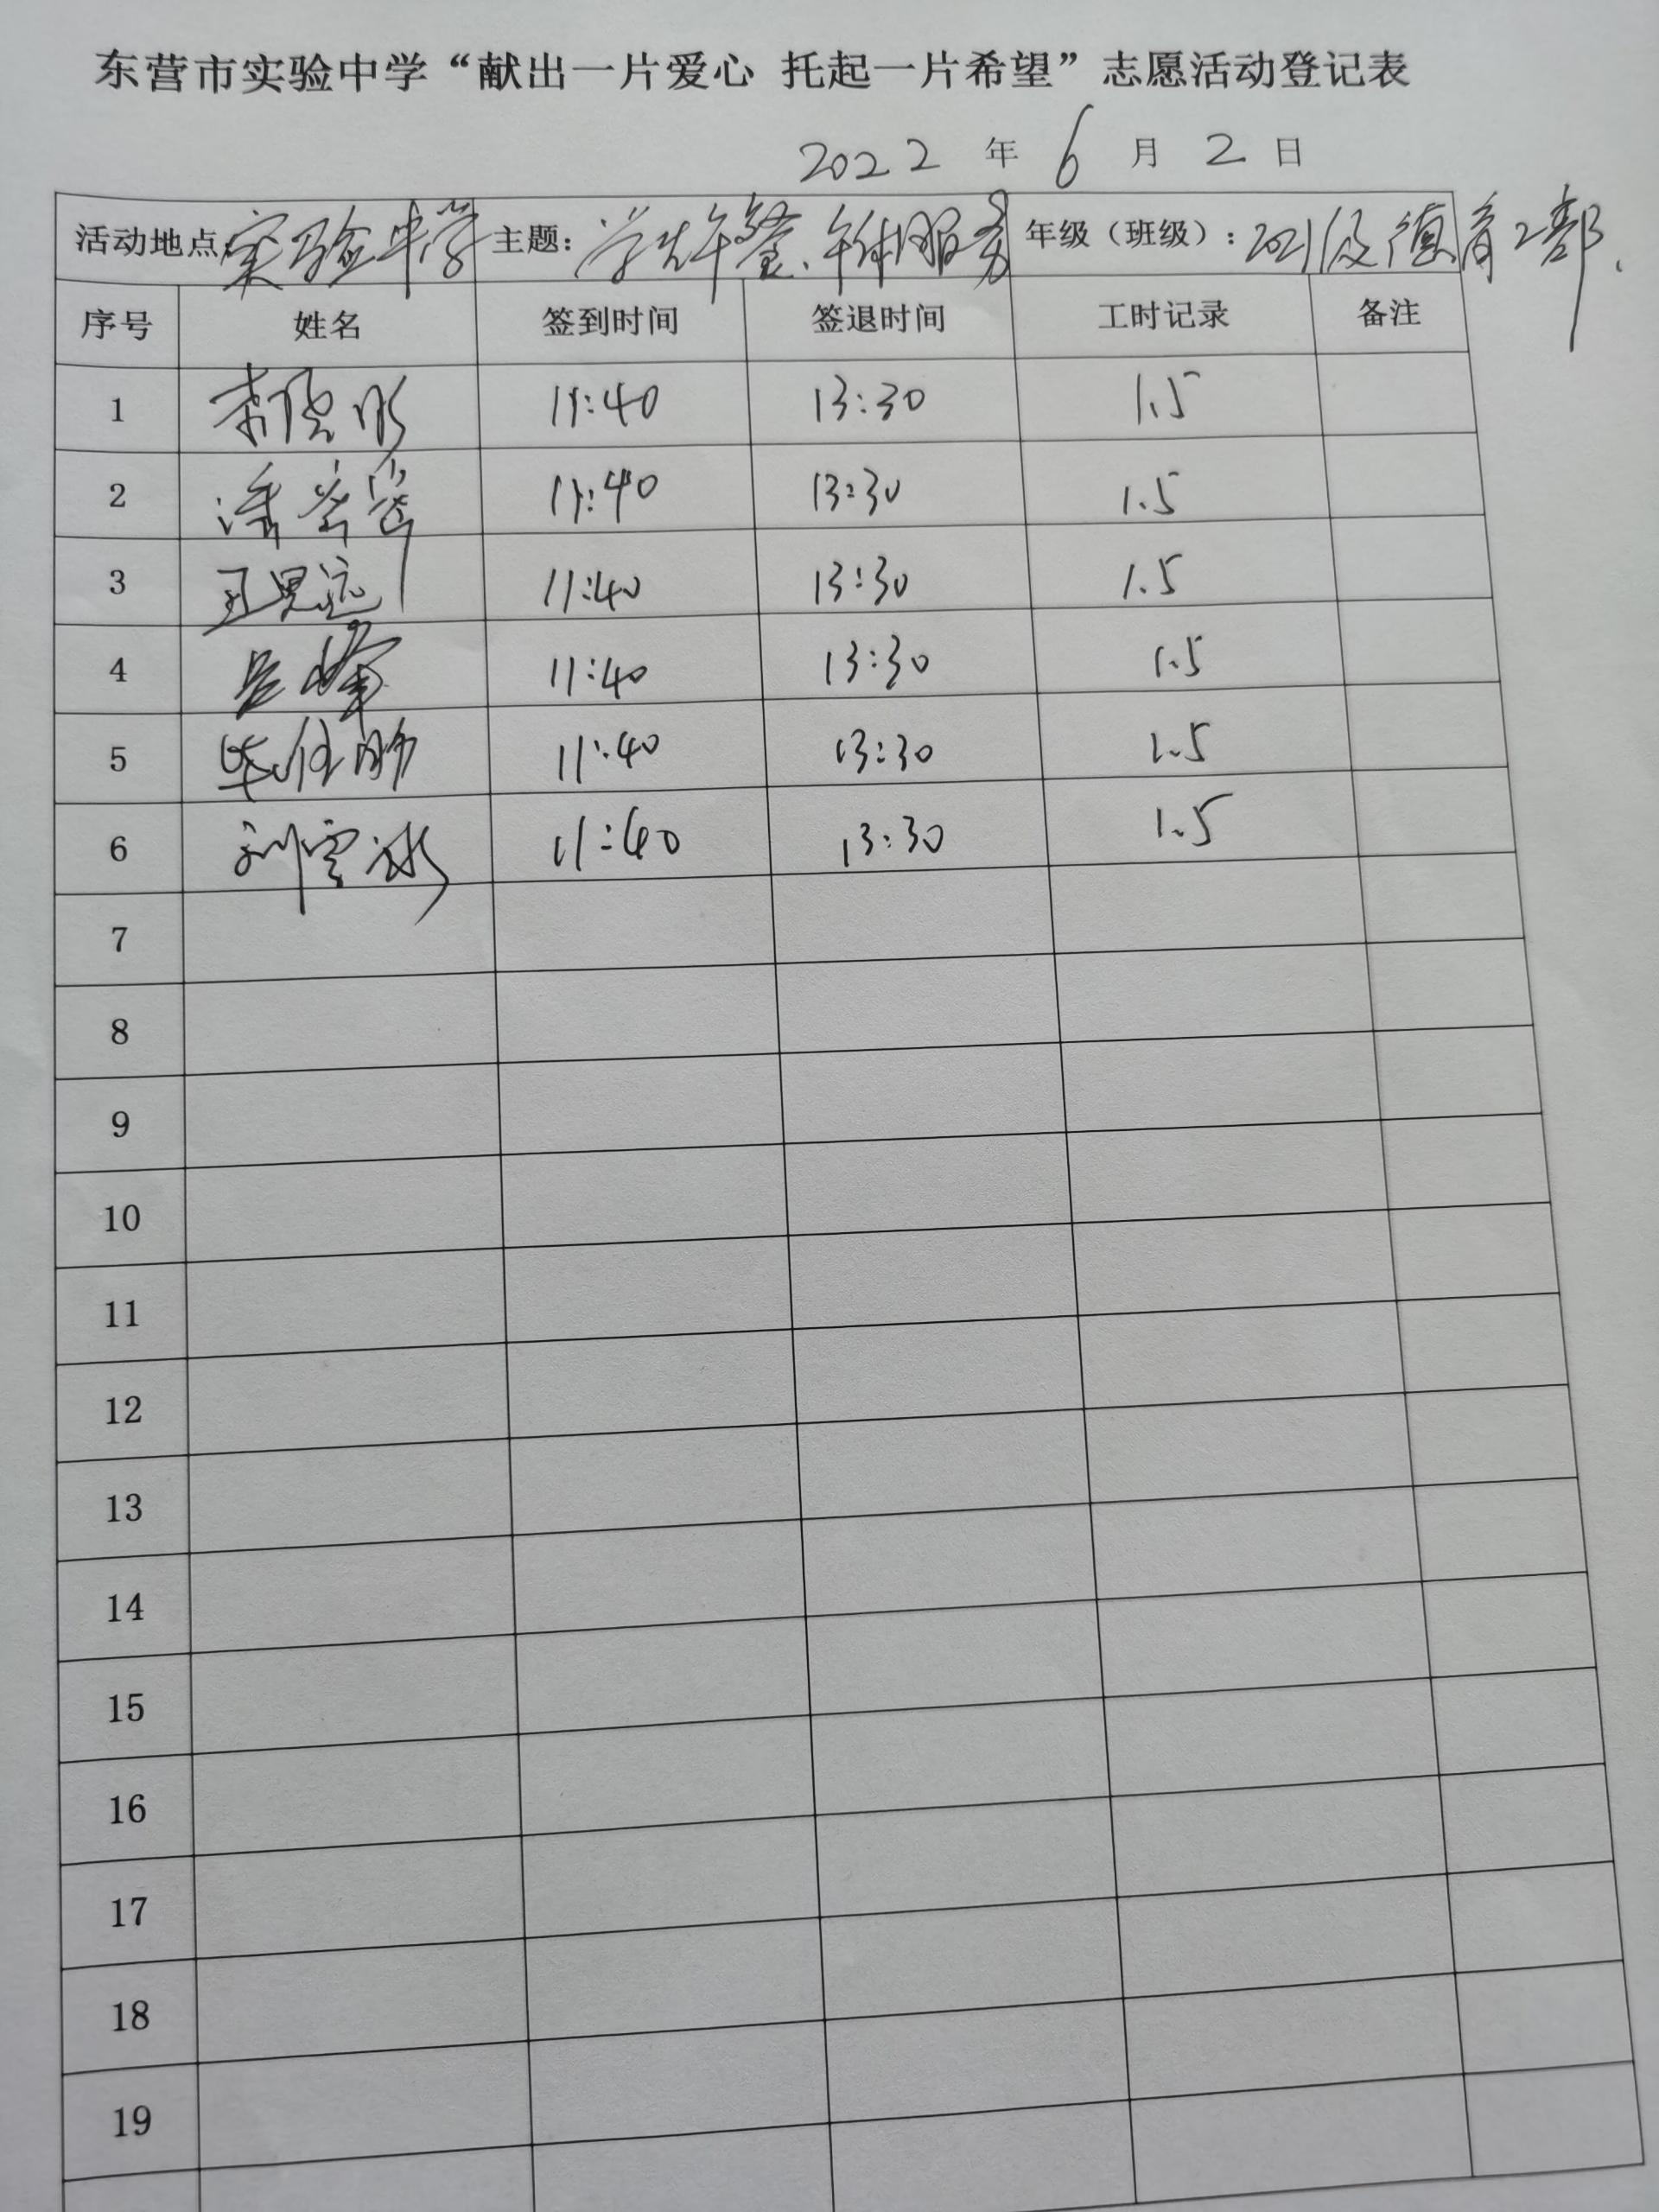 东营市实验中学“献出一片爱心 托起一片希望”志愿活动登记表
2022 年 6 月 2 日
活动地点：实验中学 主题：学生午餐、午休服务 年级（班级）：2021级德育2部.
序号 姓名 签到时间 签退时间 工时记录 备注
1 11:40 13:30 1.5
2 潘 11:40 13:30 1.5
3 王思远 11:40 13:30 1.5
4 吕峰 11:40 13:30 1.5
5 毕 11:40 13:30 1.5
6 刘雪冰 11:40 13:30 1.5
7
8
9
10
11
12
13
14
15
16
17
18
19